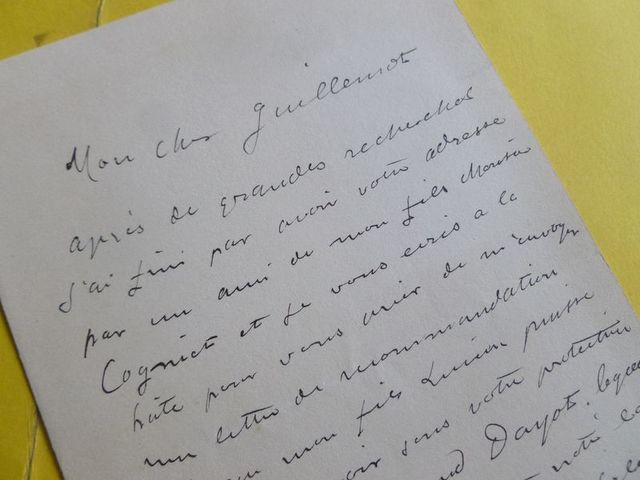 Mon cher Guillemot
après de grandes recherches
j'ai fini par avoir votre adresse
par un ami de mon fils Maurice
Cogniet et je vous ecris a la
hâte pour vous prier de m'envoyer
une lettre de recommandation
mon fils Lucien puisse
sous votre protection
Dayot, lequel
noté